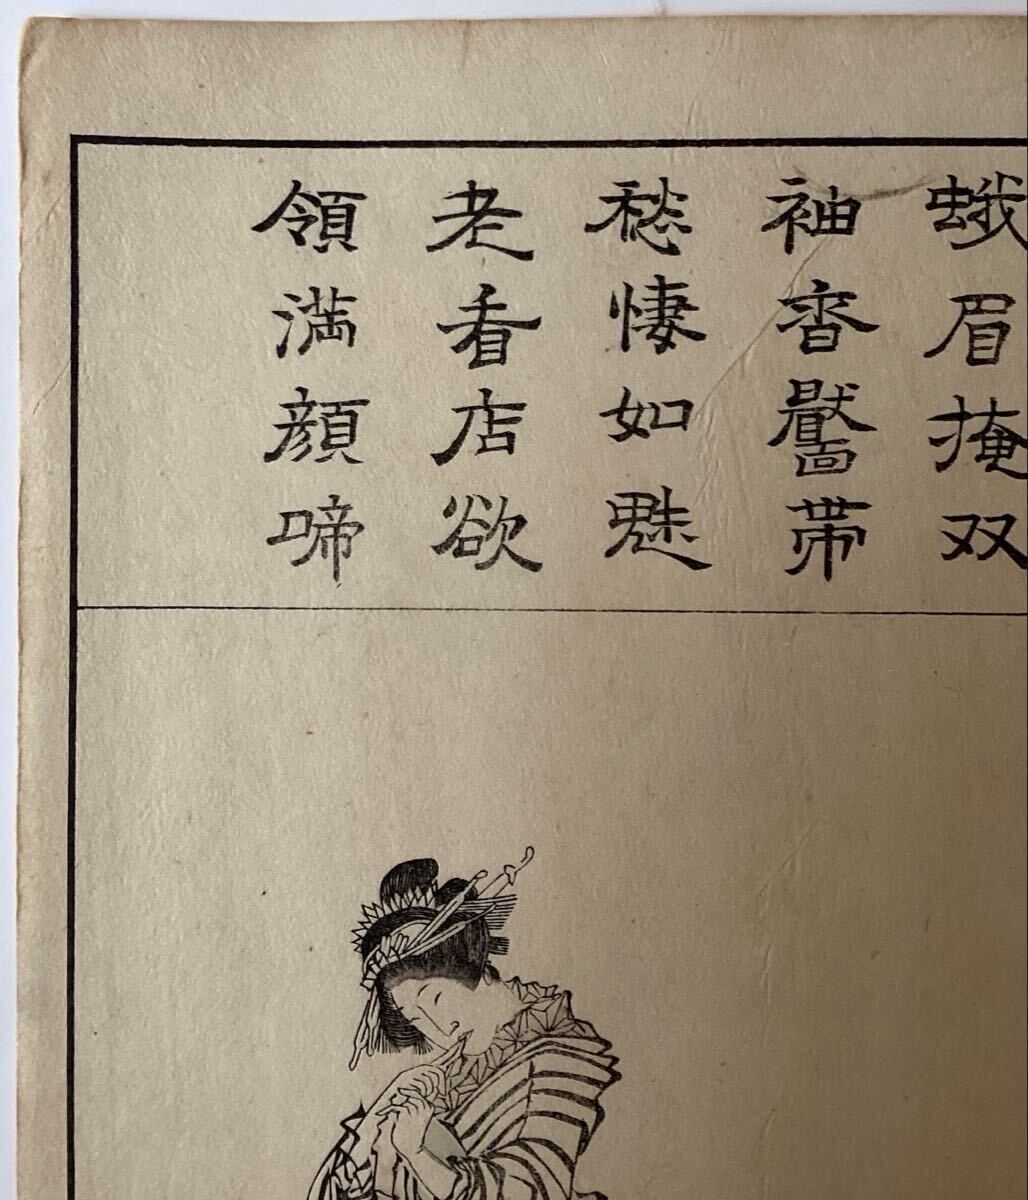 蛾眉掩双
袖香靨帯
愁悽如魅
老看店欲
領満顔啼